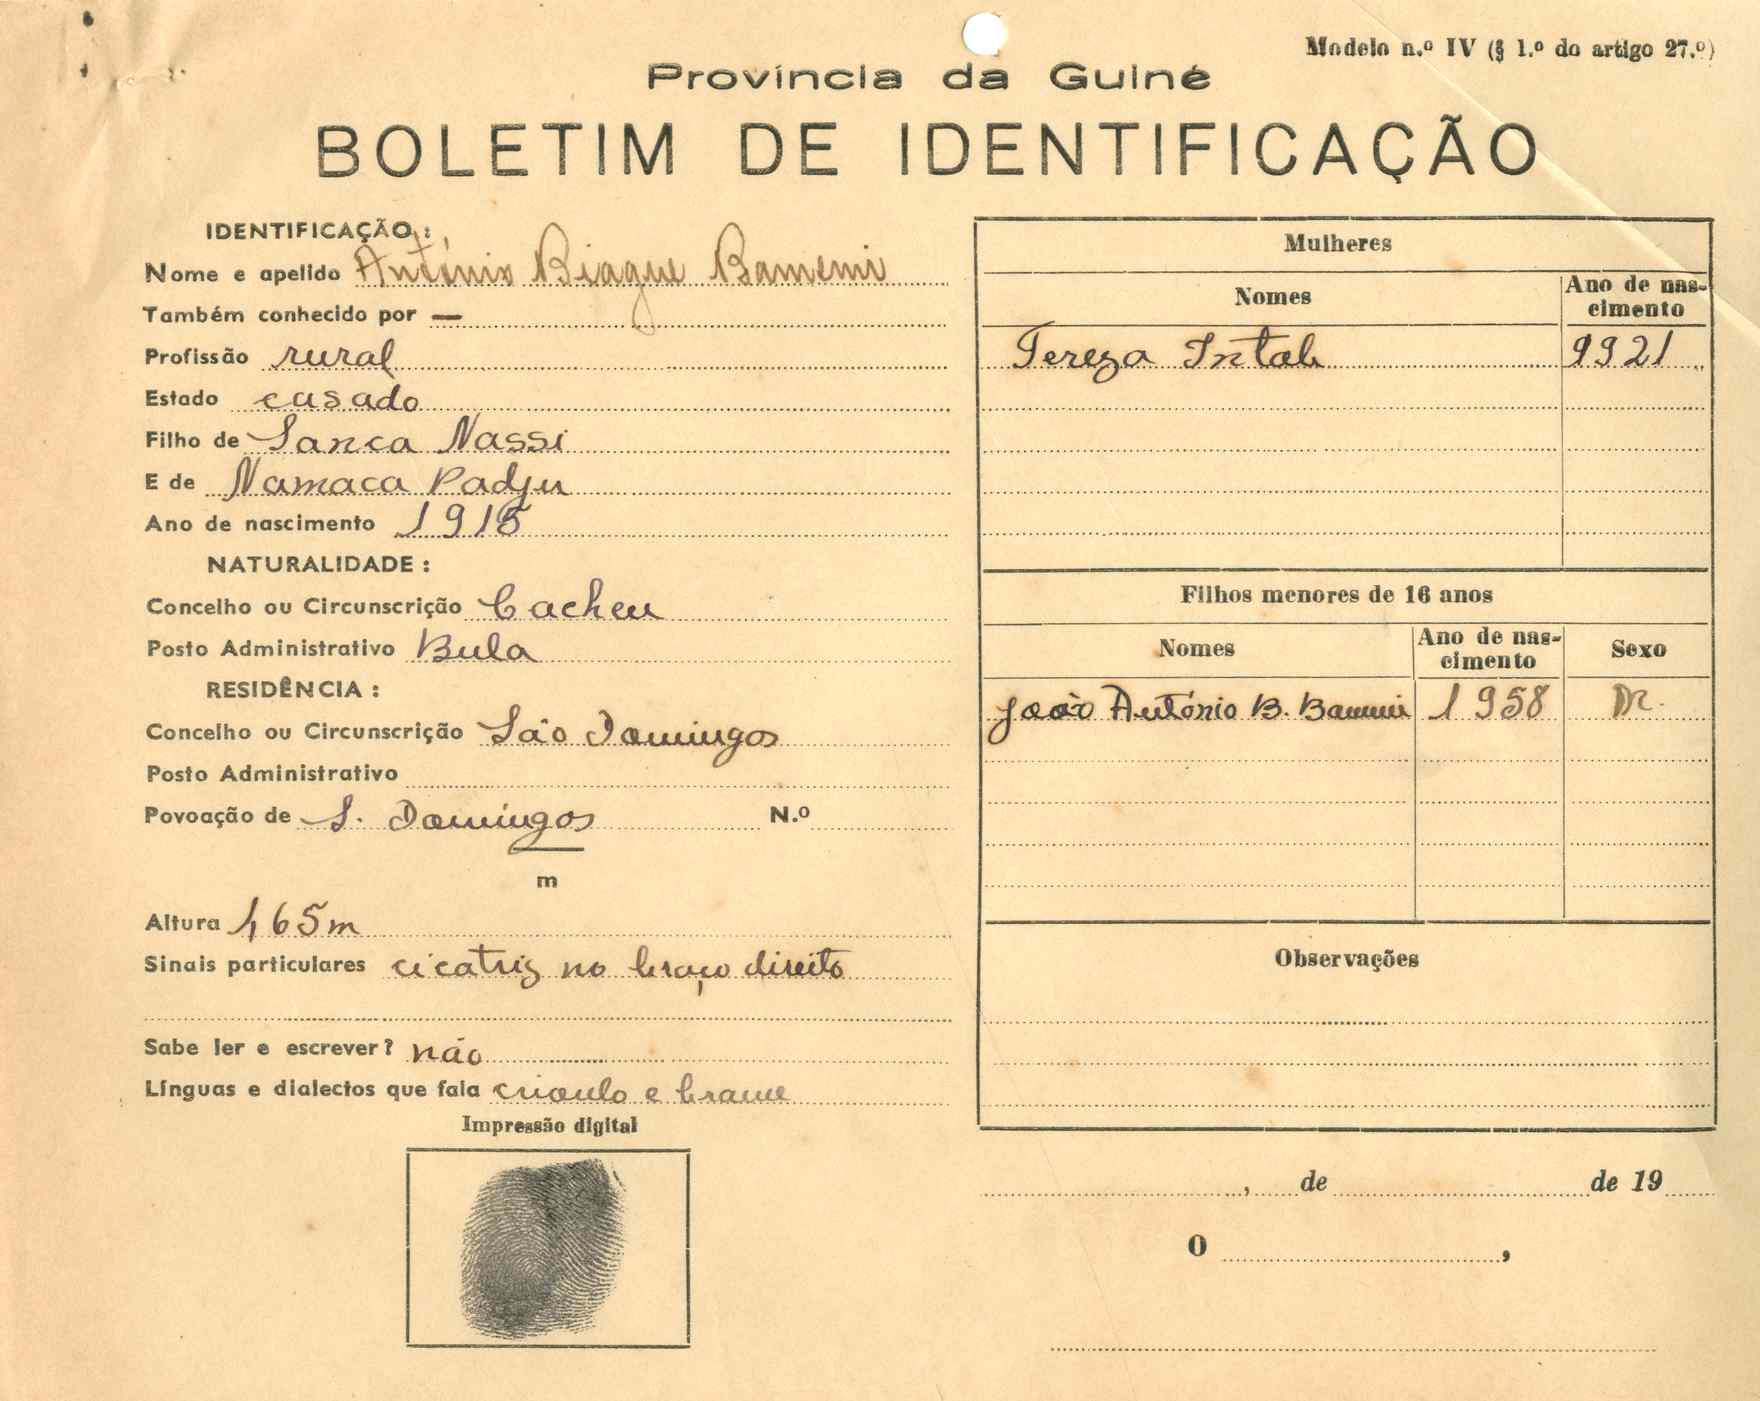 Modelo n.º IV (§ 1.º do artigo 27.º)
Província da Guiné
BOLETIM DE IDENTIFICAÇÃO
IDENTIFICAÇÃO:
Nome e apelido António Biague
Também conhecido por —
Profissão rural
Estado casado
Filho de Sanca Nassi
E de Namaca Padju
Ano de nascimento 1915
NATURALIDADE:
Concelho ou Circunscrição Cacheu
Posto Administrativo Bula
RESIDÊNCIA:
Concelho ou Circunscrição São Domingos
Posto Administrativo
Povoação de S. Domingos N.º
m
Altura 1,65m
Sinais particulares cicatriz no braço direito
Sabe ler e escrever? não
Línguas e dialectos que fala crioulo e brame
Impressão digital
Mulheres
Nomes Ano de nas-
cimento
Tereza 9921
Filhos menores de 16 anos
Nomes Ano de nas-
cimento Sexo
João António B. 1958
Observações
, de de 19
O ,